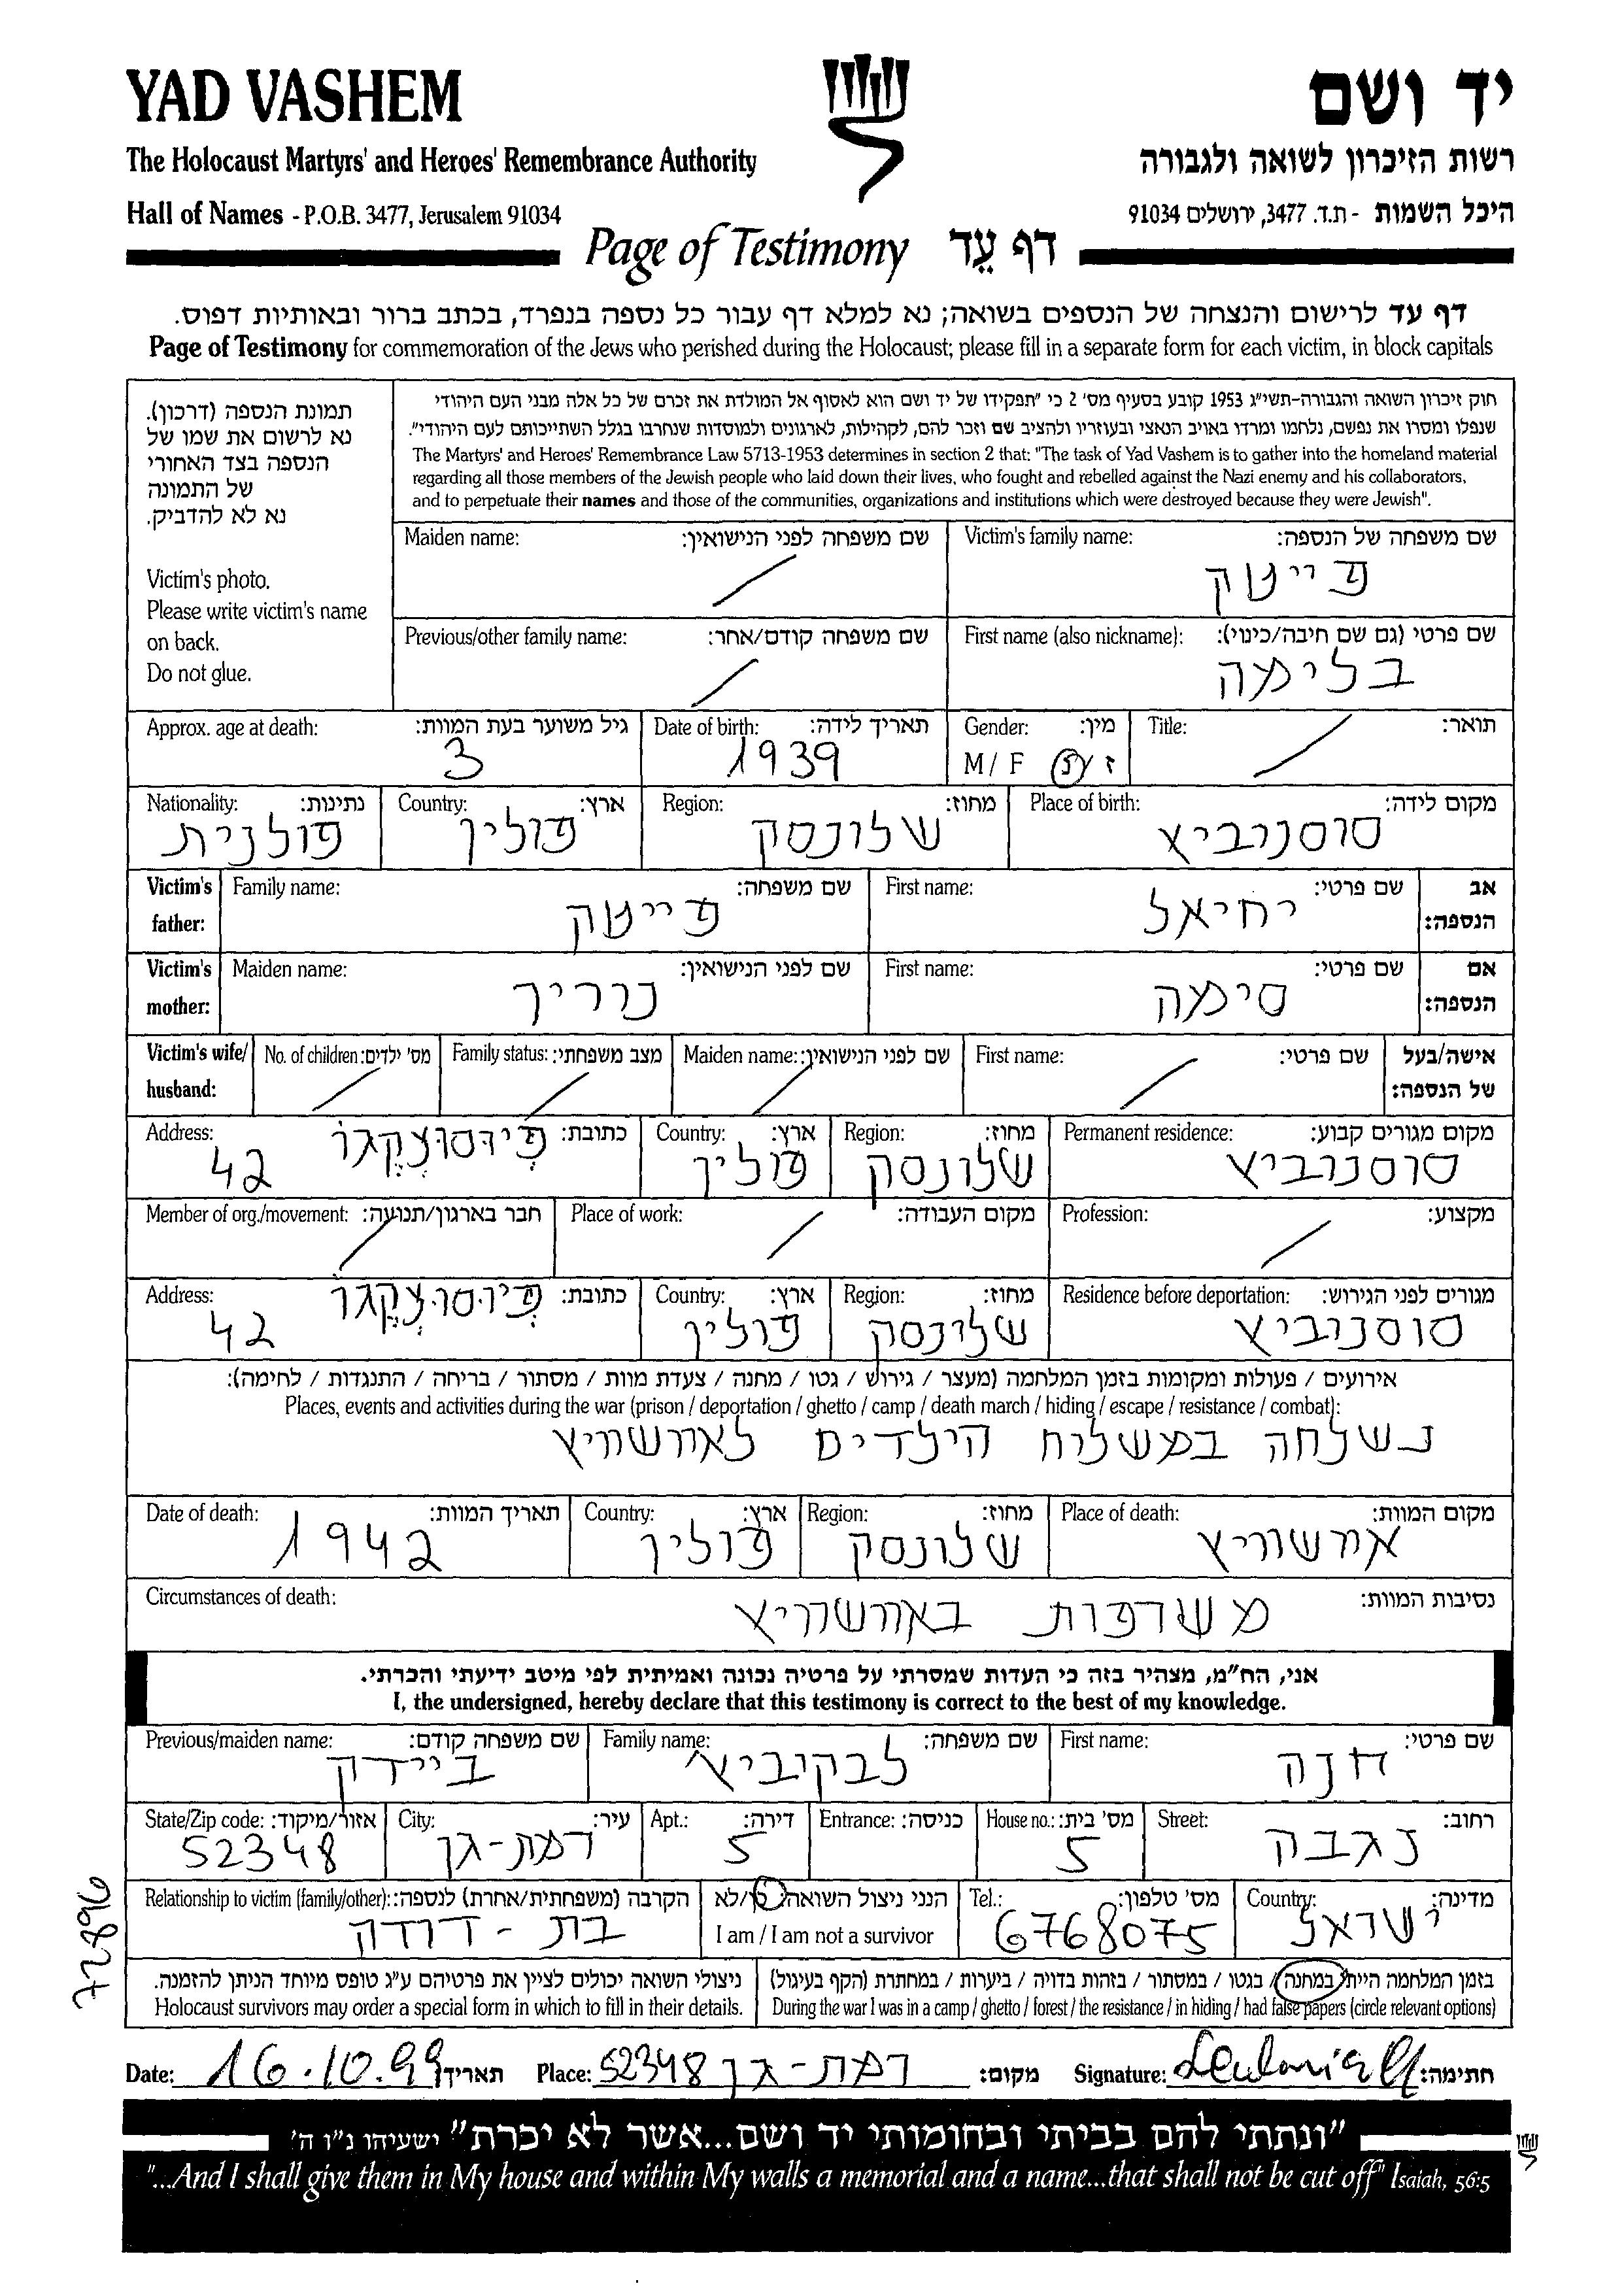 YAD VASHEM
יד ושם
The Holocaust Martyrs' and Heroes' Remembrance Authority
רשות הזיכרון לשואה ולגבורה
Hall of Names - P.O.B. 3477, Jerusalem 91034
היכל השמות - ת.ד. 3477, ירושלים 91034
Page of Testimony דף עֵד
דף עד לרישום והנצחה של הנספים בשואה; נא למלא דף עבור כל נספה בנפרד, בכתב ברור ובאותיות דפוס.
Page of Testimony for commemoration of the Jews who perished during the Holocaust; please fill in a separate form for each victim, in block capitals
תמונת הנספה (דרכון).
נא לרשום את שמו של
הנספה בצד האחורי
של התמונה
נא לא להדביק.
Victim's photo.
Please write victim's name
on back.
Do not glue.
חוק זיכרון השואה והגבורה-תשי"ג 1953 קובע בסעיף מס' 2 כי "תפקידו של יד ושם הוא לאסוף אל המולדת את זכרם של כל אלה מבני העם היהודי
שנפלו ומסרו את נפשם, נלחמו ומרדו באויב הנאצי ובעוזריו ולהציב שם וזכר להם, לקהילות, לארגונים ולמוסדות שנחרבו בגלל השתייכותם לעם היהודי".
The Martyrs' and Heroes' Remembrance Law 5713-1953 determines in section 2 that: "The task of Yad Vashem is to gather into the homeland material
regarding all those members of the Jewish people who laid down their lives, who fought and rebelled against the Nazi enemy and his collaborators,
and to perpetuate their names and those of the communities, organizations and institutions which were destroyed because they were Jewish".
Victim's family name: שם משפחה של הנספה:
פייטק
Maiden name: שם משפחה לפני הנישואין:
/
First name (also nickname): שם פרטי (גם שם חיבה/כינוי):
בלימה
Previous/other family name: שם משפחה קודם/אחר:
/
Title: תואר:
/
Gender: מין:
M / F ז / נ
Date of birth: תאריך לידה:
1939
Approx. age at death: גיל משוער בעת המוות:
3
Place of birth: מקום לידה:
סוסנוביץ
Region: מחוז:
שלונסק
Country: ארץ:
פולין
Nationality: נתינות:
פולנית
אב הנספה:
First name: שם פרטי:
יחיאל
Family name: שם משפחה:
פייטק
Victim's father:
אם הנספה:
First name: שם פרטי:
סימה
Maiden name: שם לפני הנישואין:
נוריך
Victim's mother:
אישה/בעל של הנספה:
First name: שם פרטי:
/
Maiden name: שם לפני הנישואין:
/
Family status: מצב משפחתי:
/
No. of children: מס' ילדים:
/
Victim's wife/ husband:
Permanent residence: מקום מגורים קבוע:
סוסנוביץ
Region: מחוז:
שלונסק
Country: ארץ:
פולין
Address: כתובת:
פילסוצקגו
42
Profession: מקצוע:
/
Place of work: מקום העבודה:
/
Member of org./movement: חבר בארגון/תנועה:
/
Residence before deportation: מגורים לפני הגירוש:
סוסנוביץ
Region: מחוז:
שלונסק
Country: ארץ:
פולין
Address: כתובת:
42
אירועים / פעולות ומקומות בזמן המלחמה (מעצר / גירוש / גטו / מחנה / צעדת מוות / מסתור / בריחה / התנגדות / לחימה):
Places, events and activities during the war (prison / deportation / ghetto / camp / death march / hiding / escape / resistance / combat):
נשלחה במשלוח הילדים לאושוויץ
Place of death: מקום המוות:
אושוויץ
Region: מחוז:
שלונסק
Country: ארץ:
פולין
Date of death: תאריך המוות:
1942
Circumstances of death: נסיבות המוות:
משרפות באושוויץ
אני, הח"מ, מצהיר בזה כי העדות שמסרתי על פרטיה נכונה ואמיתית לפי מיטב ידיעתי והכרתי.
I, the undersigned, hereby declare that this testimony is correct to the best of my knowledge.
First name: שם פרטי:
חנה
Family name: שם משפחה:
לבקוביץ
Previous/maiden name: שם משפחה קודם:
ביידק
Street: רחוב:
נגבה
House no.: מס' בית:
5
Entrance: כניסה:
Apt.: דירה:
5
City: עיר:
רמת-גן
State/Zip code: אזור/מיקוד:
52348
Country: מדינה:
ישראל
Tel.: מס' טלפון:
6768075
הנני ניצול השואה: כן/לא
I am / I am not a survivor
Relationship to victim (family/other): הקרבה (משפחתית/אחרת) לנספה:
בת-דודה
בזמן המלחמה הייתי במחנה / בגטו / במסתור / בזהות בדויה / ביערות / במחתרת (הקף בעיגול)
During the war I was in a camp / ghetto / forest / the resistance / in hiding / had false papers (circle relevant options)
ניצולי השואה יכולים לציין את פרטיהם ע"ג טופס מיוחד הניתן להזמנה.
Holocaust survivors may order a special form in which to fill in their details.
72896
Date: 16.10.99 תאריך
Place: רמת-גן 52348 מקום:
Signature: חתימה:
"ונתתי להם בביתי ובחומותי יד ושם...אשר לא יכרת" ישעיהו נ"ו ה'
"...And I shall give them in My house and within My walls a memorial and a name...that shall not be cut off" Isaiah, 56:5